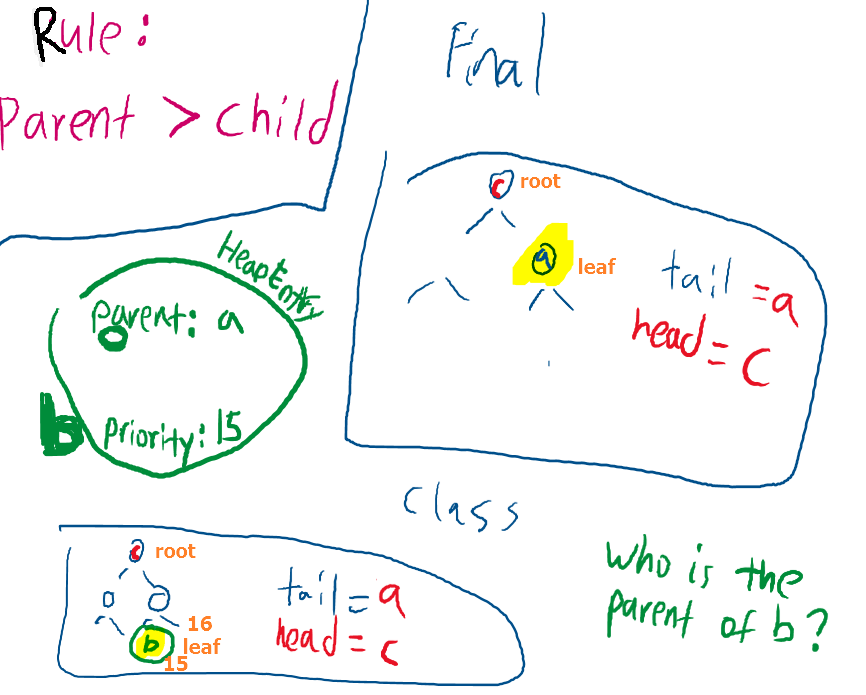 Rule:
Parent > child
Final
c root
a leaf
tail = a
head = c
HeapEntry
parent: a
b
priority: 15
class
c root
16
b leaf
15
tail = a
head = c
who is the
parent of b?